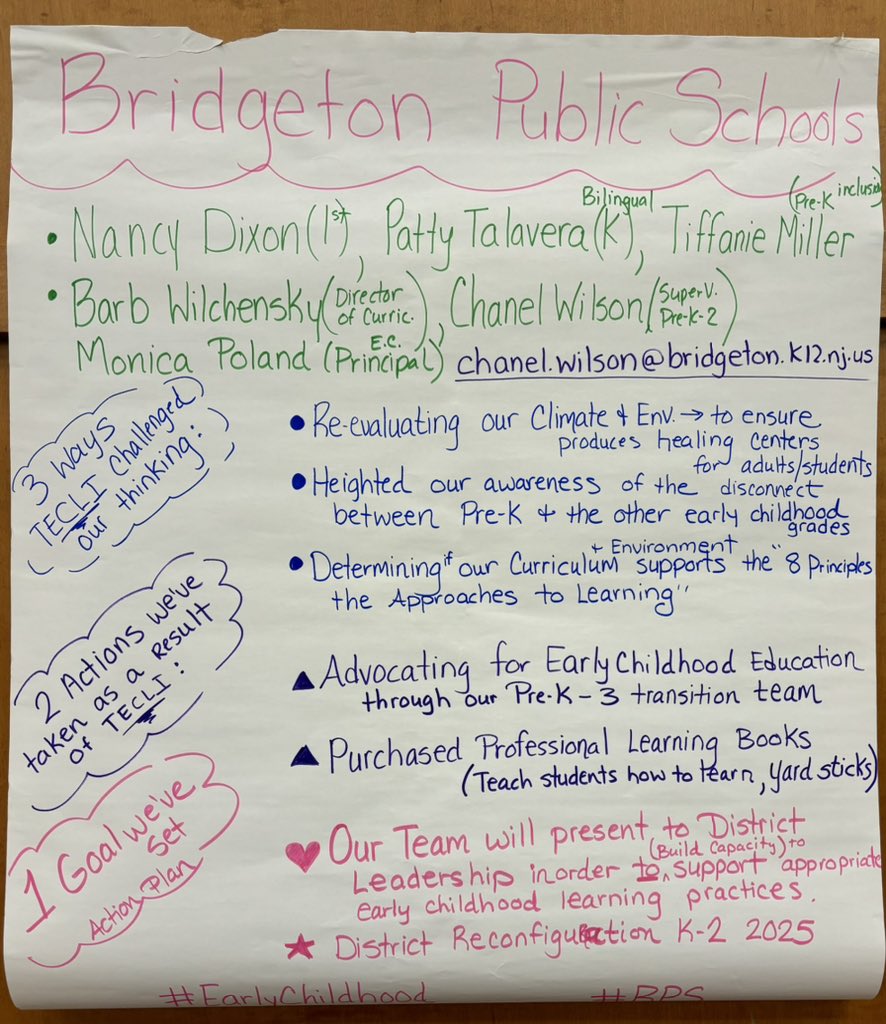 Bridgeton Public Schools
• Nancy Dixon (1st), Patty Talavera (Bilingual K), Tiffanie Miller (Pre-K inclusi
• Barb Wilchensky (Director of Curric.), Chanel Wilson (Superv. Pre-K-2)
Monica Poland (E.C. Principal) chanel.wilson@bridgeton.k12.nj.us
3 Ways
TECLI Challenged
our thinking:
• Re-evaluating our Climate + Env. → to ensure
produces healing centers
for adults/students
• Heighted our awareness of the disconnect
between Pre-K + the other early childhood
grades
• Determining if our Curriculum + Environment supports the "8 Principles
the Approaches to Learning"
2 Actions we've
taken as a result
of TECLI:
▲ Advocating for Early Childhood Education
through our Pre-K-3 transition team
▲ Purchased Professional Learning Books
(Teach students how to learn, yard sticks)
1 Goal we've
set
Action Plan
♥ Our Team will present to District
Leadership inorder to (Build Capacity) to support appropriate
early childhood learning practices.
★ District Reconfiguration K-2 2025
#EarlyChildhood #BPS